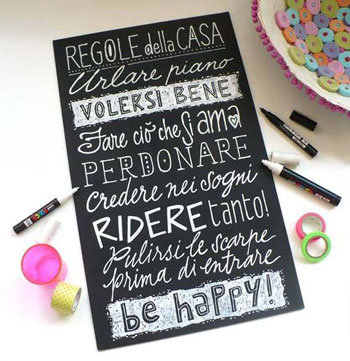 REGOLE della CASA
Urlare piano
VOLERSI BENE
Fare ciò che si ama
PERDONARE
Credere nei sogni
RIDERE tanto!
Pulirsi le scarpe
prima di entrare
be happy!